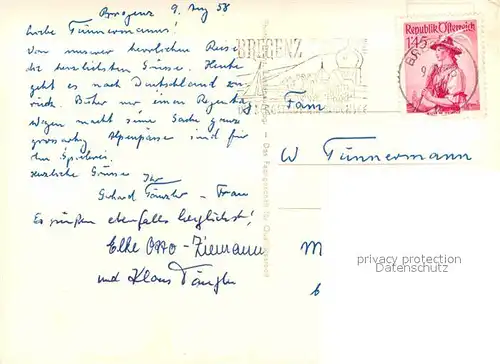 Bregenz 9. Aug 58
Liebe Tünnermanns!
Von unserer herrlichen Reise
die herzlichsten Grüsse. Heute
geht es nach Deutschland zu-
rück. Bisher nur einen Regentag
Wagen macht seine Sache ganz
grossartig Alpenpässe sind für
ihn Spielerei.
herzliche Grüsse Ihr
Gerhard - Frau
Es grüßen ebenfalls herzlichst!
Elke Otto-Ziemann
und Klaus
BREGENZ
Republik Österreich
1.45
Fam
W Tünnermann
M
privacy protection
Datenschutz